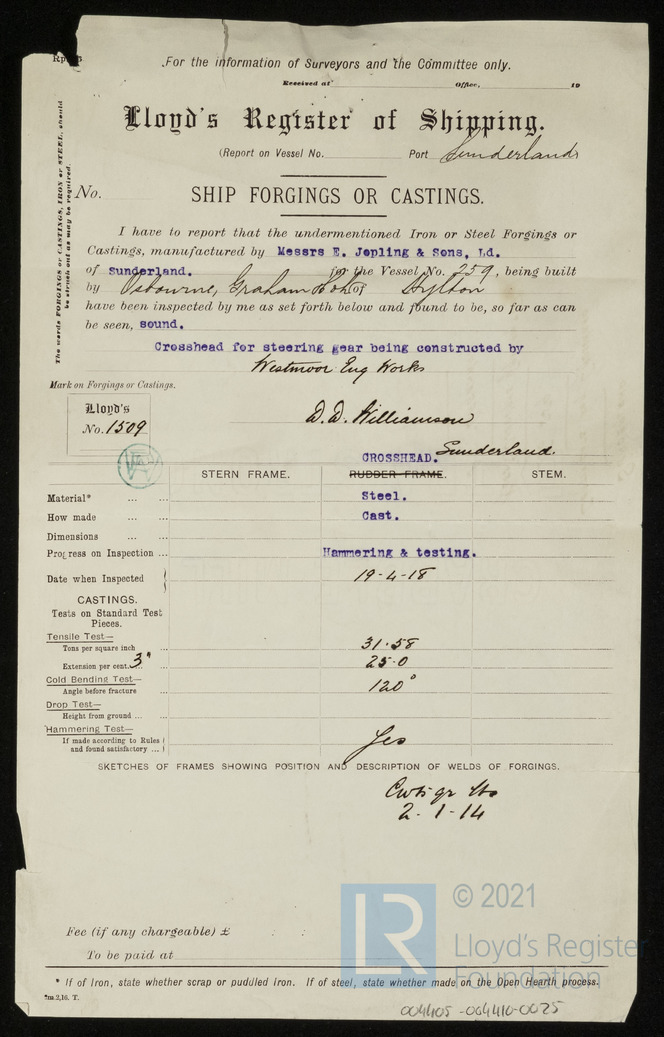 For the information of Surveyors and the Committee only.
Received at Office, 19
Lloyd's Register of Shipping.
(Report on Vessel No. Port Sunderland
No. SHIP FORGINGS OR CASTINGS.
The words FORGINGS or CASTINGS, IRON or STEEL, should
be struck out as may be required.
I have to report that the undermentioned Iron or Steel Forgings or
Castings, manufactured by Messrs E. Jopling & Sons, Ld.
of Sunderland. for the Vessel No. 259, being built
by Osbourne, Graham & Co of Hylton
have been inspected by me as set forth below and found to be, so far as can
be seen, sound.
Crosshead for steering gear being constructed by
Westmoor Eng Works
Mark on Forgings or Castings.
Lloyd's
No. 1509
D. D. Williamson
Sunderland.
CROSSHEAD.
STERN FRAME. RUDDER FRAME. STEM.
Material* ... ... Steel.
How made ... ... Cast.
Dimensions ... ...
Progress on Inspection ... Hammering & testing.
Date when Inspected 19-4-18
CASTINGS.
Tests on Standard Test
Pieces.
Tensile Test—
Tons per square inch 31.58
Extension per cent. 3" 25.0
Cold Bending Test—
Angle before fracture 120°
Drop Test—
Height from ground ... ...
Hammering Test—
If made according to Rules
and found satisfactory ... Yes
SKETCHES OF FRAMES SHOWING POSITION AND DESCRIPTION OF WELDS OF FORGINGS.
Cwts qr lbs
2-1-14
Fee (if any chargeable) £ : :
To be paid at
* If of Iron, state whether scrap or puddled iron. If of steel, state whether made on the Open Hearth process.
2,16. T.
004405-004410-0025
LR
© 2021
Lloyd's Register
Foundation